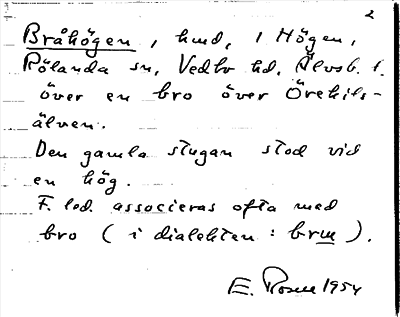 2
Bråhögen, hmd, 1 Högen,
Rölanda sn, Vedbo hd, Älvsb. l.
över en bro över Örekils-
älven.
Den gamla stugan stod vid
en hög.
F. led. associeras ofta med
bro (i dialekten: brω).
E. 1954